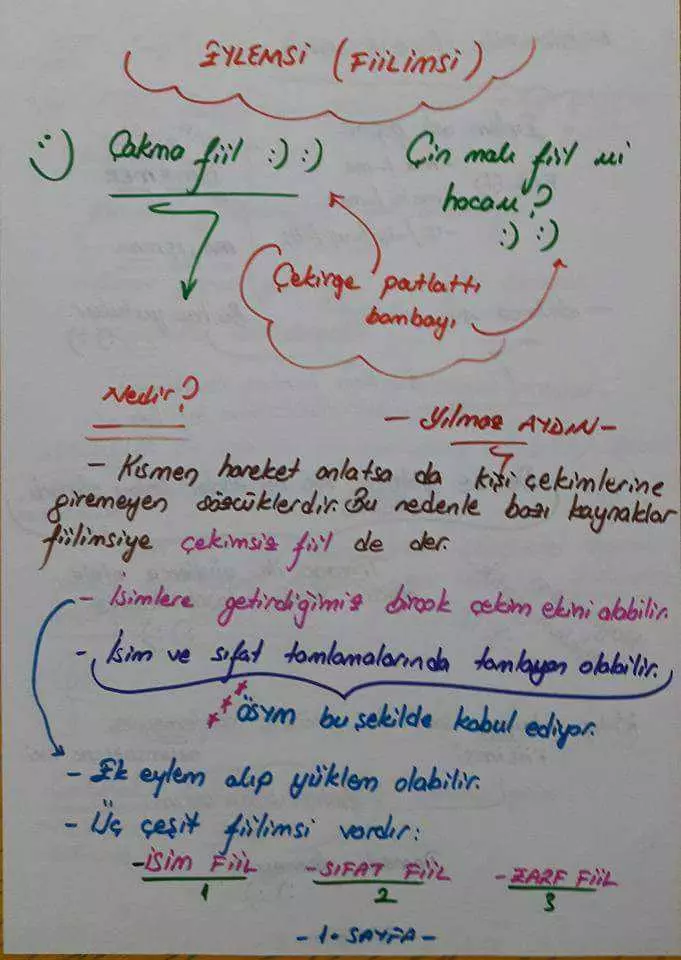 EYLEMSİ (FiiLiMSi)
:) Çakma fiil :) :)
Çin malı fiil mi
hocam?
:) :)
Çekirge patlattı
bombayı
Nedir?
- Yılmaz AYDIN -
- Kısmen hareket anlatsa da kişi çekimlerine
giremeyen sözcüklerdir. Bu nedenle bazı kaynaklar
fiilimsiye çekimsiz fiil de der.
- İsimlere getirdiğimiz birçok çekim ekini alabilir.
- İsim ve sıfat tamlamalarında tamlayan olabilir.
*** ÖSYM bu şekilde kabul ediyor.
- Ek eylem alıp yüklem olabilir.
- Üç çeşit fiilimsi vardır:
- İSİM FİİL - SIFAT FİİL - ZARF FİİL
1 2 3
- 1. SAYFA -